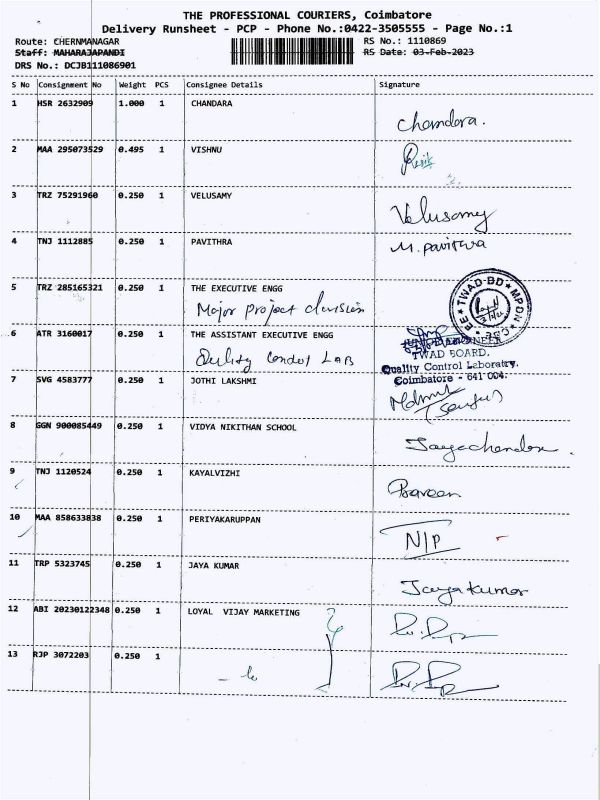 THE PROFESSIONAL COURIERS, Coimbatore
Delivery Runsheet - PCP - Phone No.:0422-3505555 - Page No.:1
Route: CHERNMANAGAR RS No.: 1110869
Staff: MAHARAJAPANDI RS Date: 03-Feb-2023
DRS No.: DCJB111086901
S No Consignment No Weight PCS Consignee Details Signature
1 HSR 2632909 1.000 1 CHANDARA
Chandara.
2 MAA 295073529 0.495 1 VISHNU
3 TRZ 75291960 0.250 1 VELUSAMY
Velusamy
4 TNJ 1112885 0.250 1 PAVITHRA M. Pavithra
5 TRZ 285165321 0.250 1 THE EXECUTIVE ENGG
Major project division
EE ★ TWAD-BD ★ MPDN ★ CBE
6 ATR 3160017 0.250 1 THE ASSISTANT EXECUTIVE ENGG
Quality Control LAB
TWAD BOARD.
Quality Control Laboratry.
Coimbatore - 641 004.
7 SVG 4583777 0.250 1 JOTHI LAKSHMI
8 GGN 900085449 0.250 1 VIDYA NIKITHAN SCHOOL
Jayachandra
9 TNJ 1120524 0.250 1 KAYALVIZHI
Praveen
10 MAA 858633838 0.250 1 PERIYAKARUPPAN
N/P
11 TRP 5323745 0.250 1 JAYA KUMAR
Jayakumar
12 ABI 20230122348 0.250 1 LOYAL VIJAY MARKETING
13 RJP 3072203 0.250 1